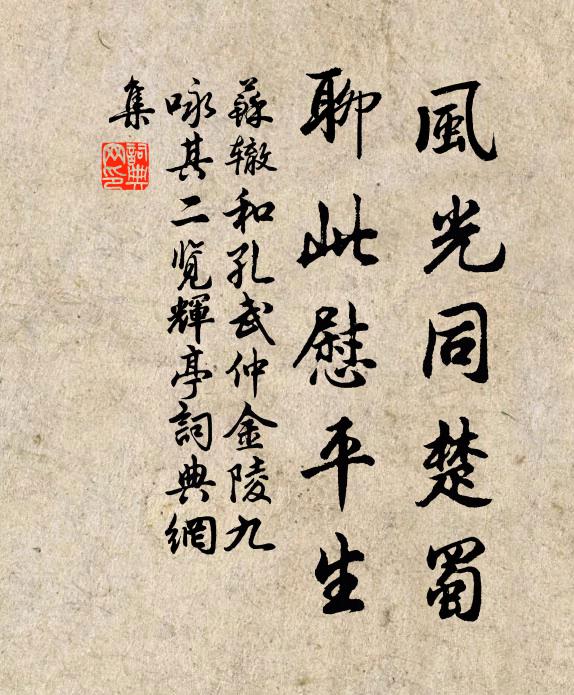 風光同楚蜀
聊此慰平生
蘇辙和孔武仲金陵九
咏其二覽輝亭詞典網
集
詞典
网印